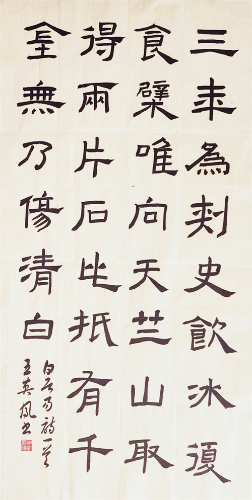 三年為刺史飲冰復
食檗唯向天竺山取
得兩片石此抵有千
金無乃傷清白
白居易詩一首
王英凤书